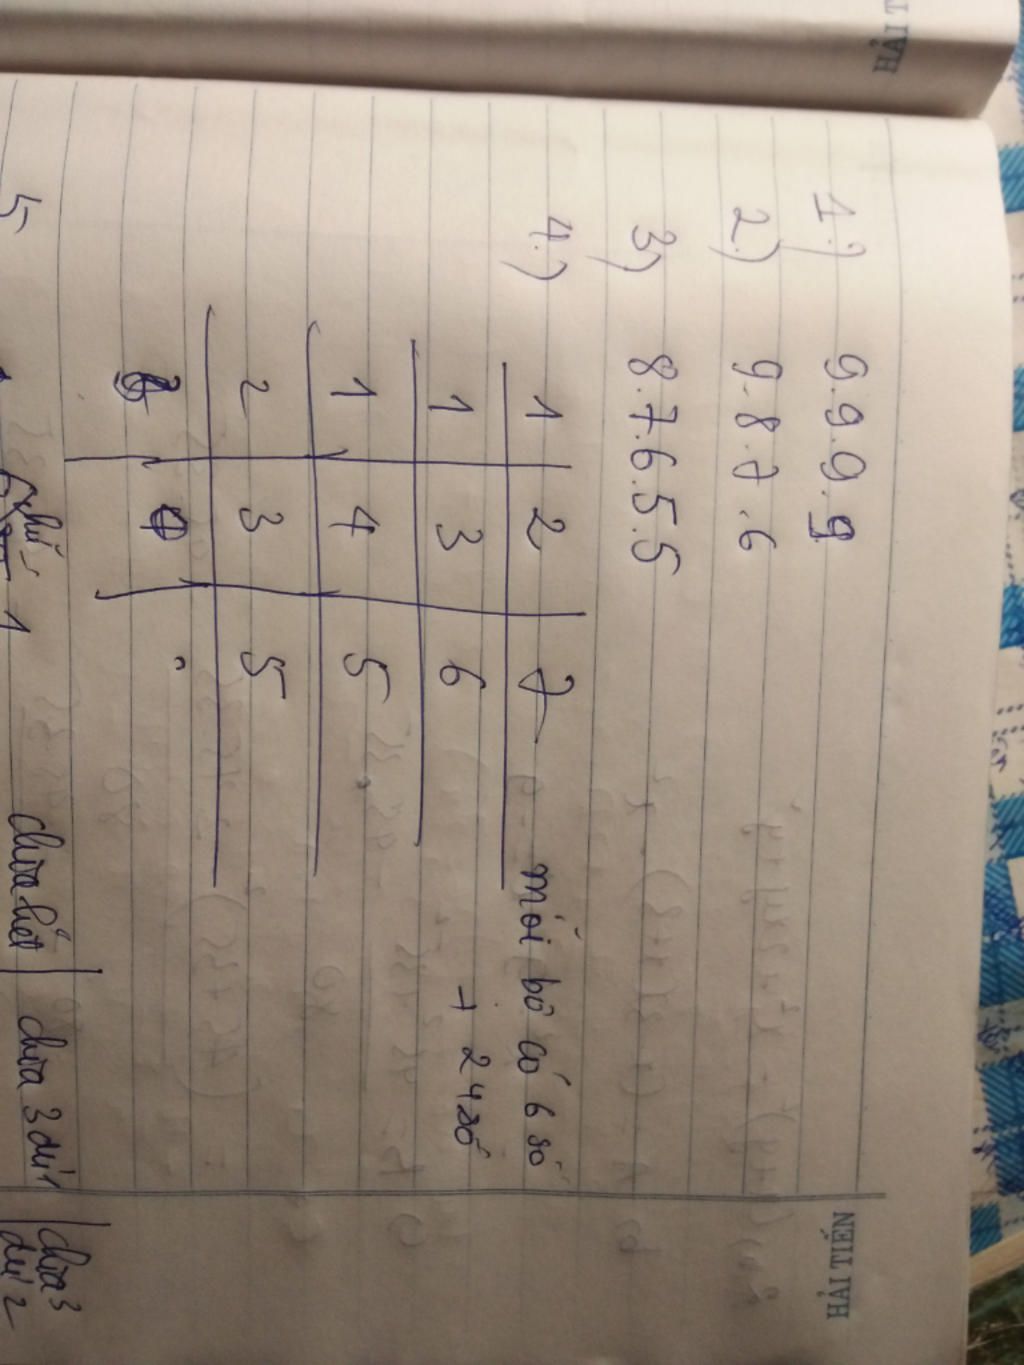 HẢI T
HẢI TIẾN
1.) 9.9.9.9
2.) 9.8.7.6
3) 8.7.6.5.5
4.) 1 2 7 mỗi bộ có 6 số
1 3 6 → 24 số
1 4 5
2 3 5
5, chữ 1 chia hết chia 3 dư 1 chia 3 dư 2